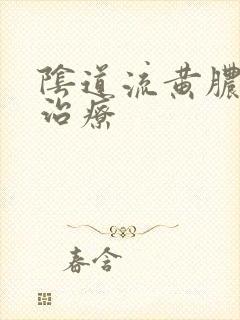 陰道流黃膿
治療
春含